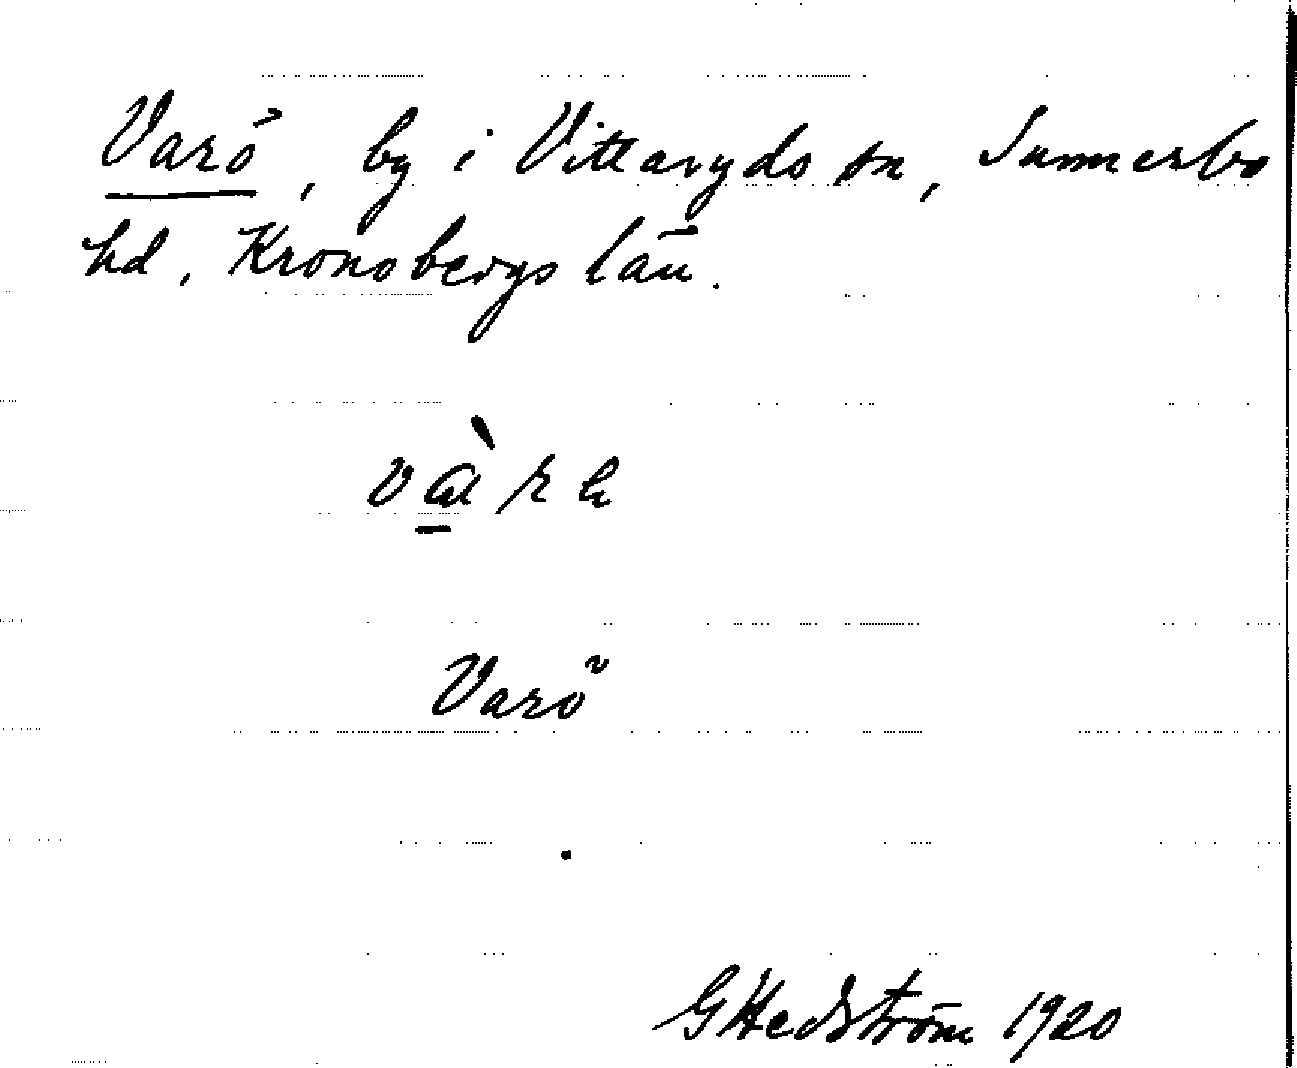 Varö, by i Vittaryds sn, Sunnerbo
hd, Kronobergs län.
Varö
GHedström 1920